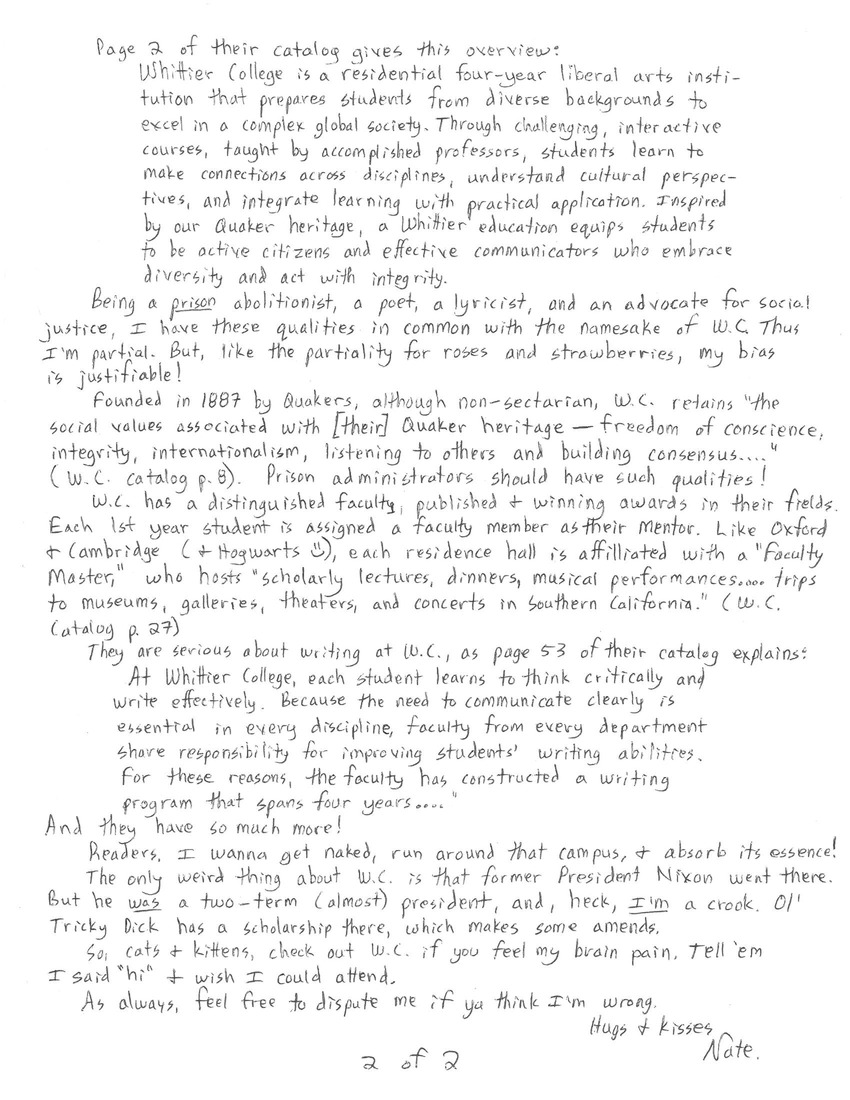 Page 2 of their catalog gives this overview:
Whittier College is a residential four-year liberal arts insti-
tution that prepares students from diverse backgrounds to
excel in a complex global society. Through challenging, interactive
courses, taught by accomplished professors, students learn to
make connections across disciplines, understand cultural perspec-
tives, and integrate learning with practical application. Inspired
by our Quaker heritage, a Whittier education equips students
to be active citizens and effective communicators who embrace
diversity and act with integrity.
Being a prison abolitionist, a poet, a lyricist, and an advocate for social
justice, I have these qualities in common with the namesake of W.C. Thus
I'm partial. But, like the partiality for roses and strawberries, my bias
is justifiable!
Founded in 1887 by Quakers, although non-sectarian, W.C. retains "the
social values associated with [their] Quaker heritage — freedom of conscience,
integrity, internationalism, listening to others and building consensus...."
(W.C. catalog p. 8). Prison administrators should have such qualities!
W.C. has a distinguished faculty, published + winning awards in their fields.
Each 1st year student is assigned a faculty member as their mentor. Like Oxford
+ Cambridge (+ Hogwarts ☺), each residence hall is affilliated with a "Faculty
Master," who hosts "scholarly lectures, dinners, musical performances.... trips
to museums, galleries, theaters, and concerts in Southern California." (W.C.
Catalog p. 27)
They are serious about writing at W.C., as page 53 of their catalog explains:
At Whittier College, each student learns to think critically and
write effectively. Because the need to communicate clearly is
essential in every discipline, faculty from every department
share responsibility for improving students' writing abilities.
For these reasons, the faculty has constructed a writing
program that spans four years...."
And they have so much more!
Readers, I wanna get naked, run around that campus, + absorb its essence!
The only weird thing about W.C. is that former President Nixon went there.
But he was a two-term (almost) president, and, heck, I'm a crook. Ol'
Tricky Dick has a scholarship there, which makes some amends.
So, cats + kittens, check out W.C. if you feel my brain pain. Tell 'em
I said "hi" + wish I could attend.
As always, feel free to dispute me if ya think I'm wrong.
Hugs + kisses,
Nate.
2 of 2